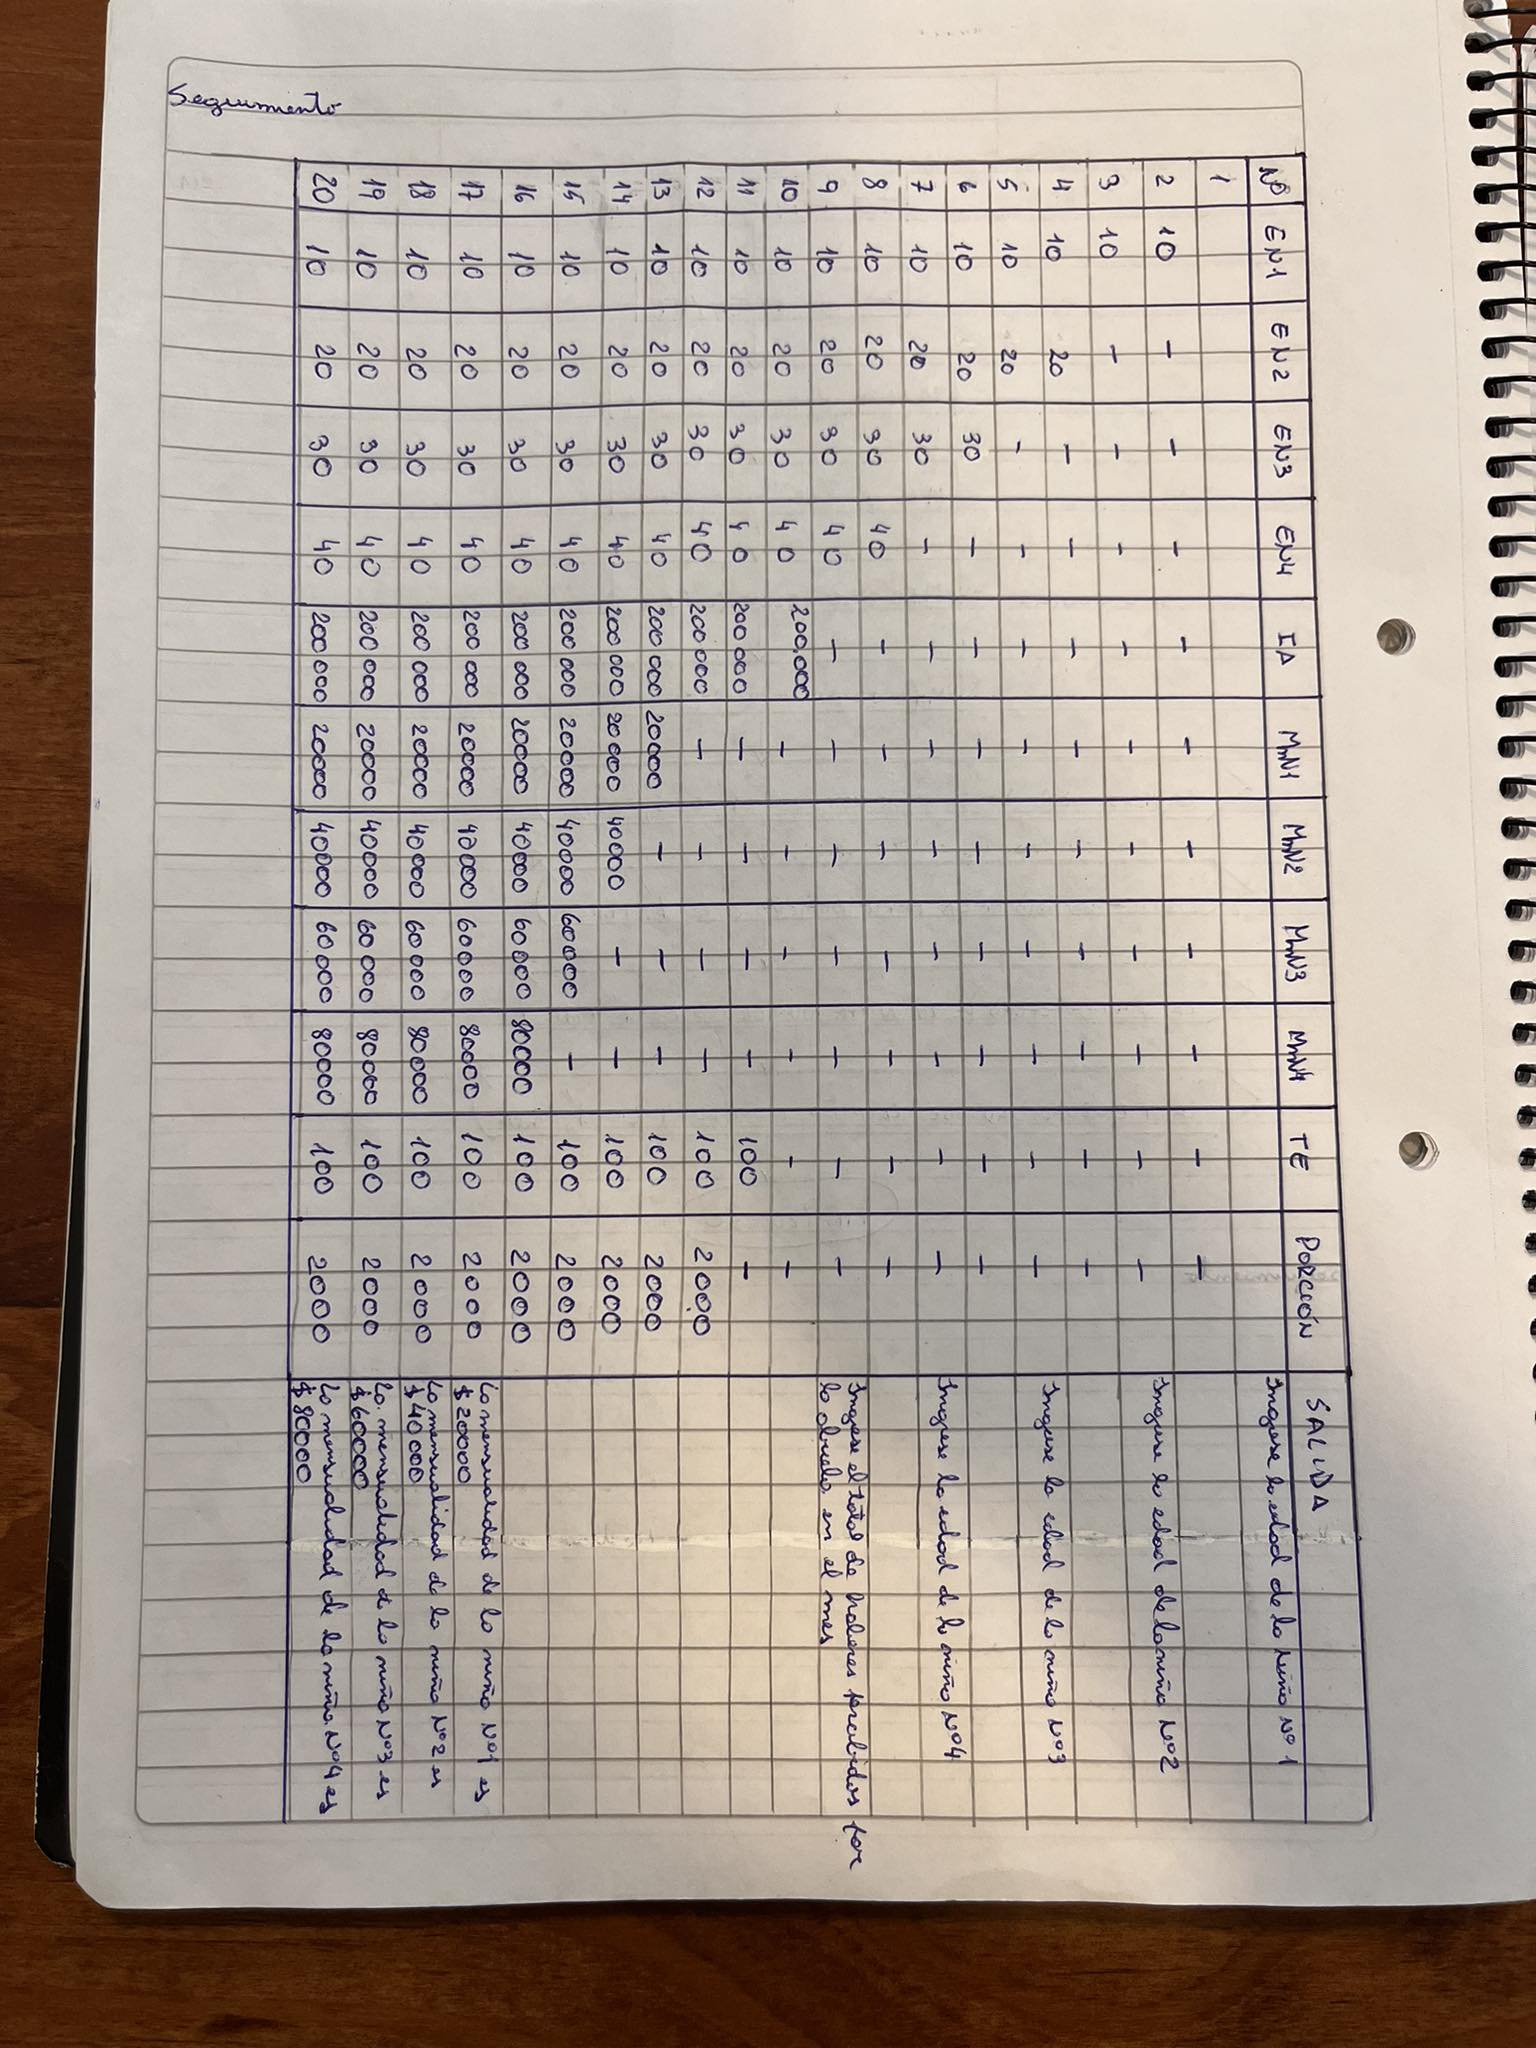 Seguimiento
Nº EN1 EN2 EN3 EN4 IA MnN1 MnN2 MnN3 MnN4 TE PORCIÓN SALIDA
1 Ingrese la edad de la Niña Nº 1
2 10 - - - - - - - - - -
3 10 - - - - - - - - - - Ingrese la edad de la niña Nº2
4 10 20 - - - - - - - - -
5 10 20 - - - - - - - - - Ingrese la edad de la niña Nº3
6 10 20 30 - - - - - - - -
7 10 20 30 - - - - - - - - Ingrese la edad de la niña Nº4
8 10 20 30 40 - - - - - - -
9 10 20 30 40 - - - - - - - Ingrese el total de haberes percibidos por
la abuela en el mes
10 10 20 30 40 200.000 - - - - - -
11 10 20 30 40 200 000 - - - - 100 -
12 10 20 30 40 200 000 - - - - 100 2000
13 10 20 30 40 200 000 20000 - - - 100 2000
14 10 20 30 40 200 000 20000 40000 - - 100 2000
15 10 20 30 40 200 000 20000 40000 60000 - 100 2000
16 10 20 30 40 200 000 20000 40000 60000 80000 100 2000
17 10 20 30 40 200 000 20000 40000 60000 80000 100 2000 La mensualidad de la niña Nº1 es
$ 20000
18 10 20 30 40 200 000 20000 40000 60000 80000 100 2000 La mensualidad de la niña Nº2 es
$ 40 000
19 10 20 30 40 200 000 20000 40000 60000 80000 100 2000 La mensualidad de la niña Nº3 es
$ 60000
20 10 20 30 40 200 000 20000 40000 60000 80000 100 2000 La mensualidad de la niña Nº4 es
$ 80000